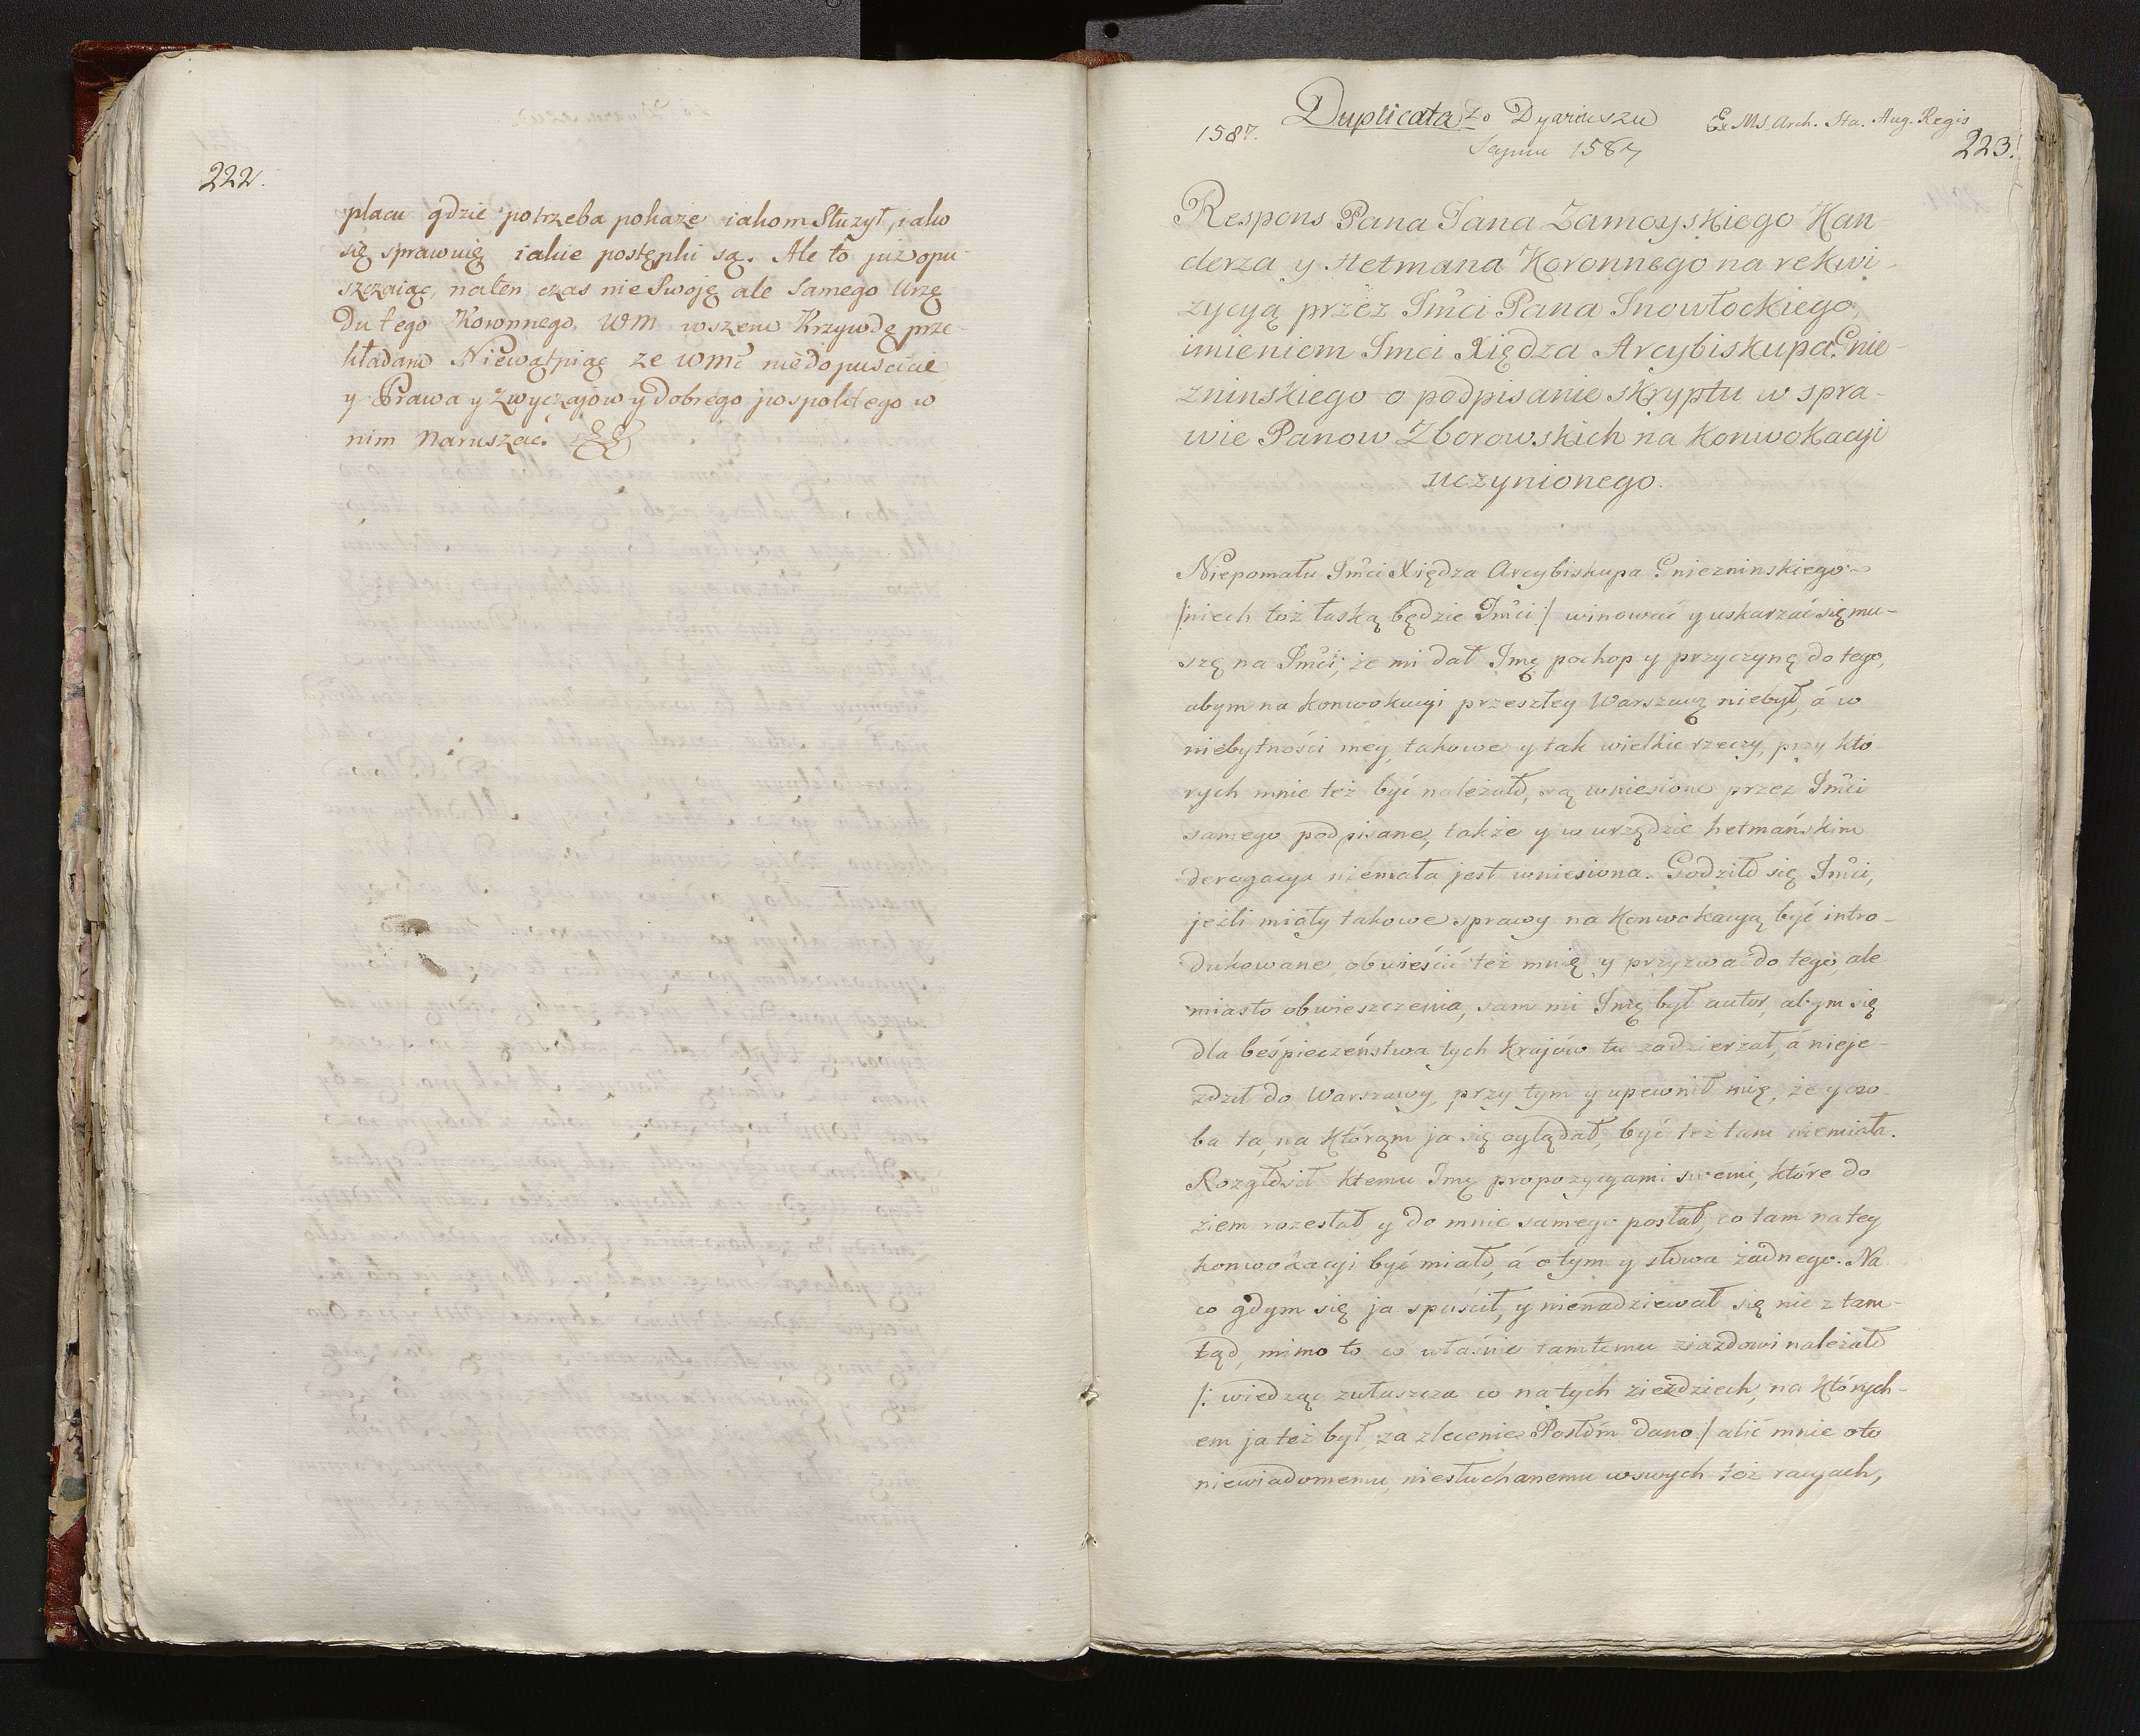 222.
placu gdzie potrzeba pokaże iakom Służył, iako
się sprawuię iakie postępki są. Ale to już opu-
szczaiąc, naten czas nie Swoję ale Samego Urzę
du tego Koronnego, WM wszem Krzywdę prze-
kładam Niewątpiąc ze WMć niedopuścicie
y Prawa y Zwyczajow y Dobrego pospolitego w
nim Naruszać.
1587.
Duplicata Do Dyariuszu
Seymu 1587
Ex MS. Arch. Sta. Aug. Regis
223.
Respons Pana Jana Zamoyskiego Kan
clerza y Hetmana Koronnego na rekwi-
zycyą przez Jmći Pana Jnowłockiego,
imieniem Jmći Xiędza Arcybiskupa Gnie-
zninskiego o podpisanie skryptu w spra-
wie Panow Zborowskich na Konwokacyi
uczynionego.
Niepomału Jmći Xiędza Arcybiskupa Gniezninskiego
/:niech toż łaską będzie Jmći:/ winować y uskarzać się mu-
szę na Jmći; że mi dał Jmę pochop y przyczynę do tego,
abym na konwokacyi przeszłey Warszawę niebył, á w
niebytności mey, takowe y tak wielkie rzeczy, przy któ
rych mnie też być należało, są wniesione przez Jmći
samego podpisane, także y w urzędzie hetmańskim
derogacya niemała jest wniesiona. Godziło się Jmći,
jeżli miały takowe sprawy na Konwokacyą być intro-
dukowane, obwieścić też mnię y przyzwać do tego, ale
miasto obwieszczenia, sam mi Jmę był autor, abym się
dla beśpieczeństwa tych krajów tu zadzierżał, á nieje-
zdził do Warszawy, przy tym y upewnił mię, że y oso-
ba ta, na którąm ja się oglądał, być też tam niemiała.
Rozgłosił ktemu Jmę propozycyami swemi, które do
ziem rozesłał, y do mnie samego posłał, co tam na tey
konwokacyi być miało, á o tym y słowa żadnego. Na
co gdym się ja spuścił, y nienadziewał się nic z tam-
tąd, mimo to co właśnie tamtemu ziazdowi należało
/: wiedząc zwłaszcza co na tych zieździech, na których-
em ja też był, za zlecenie Posłóm dano:/ alić mnie oto
niewiadomemu, niesłuchanemu w swych też racyach,